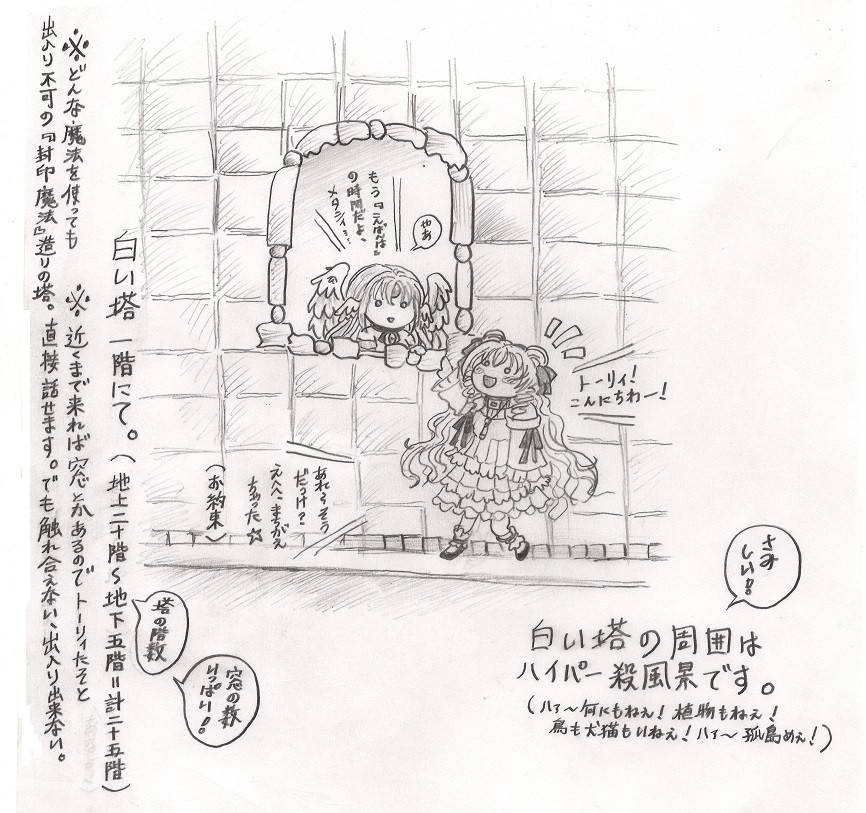 ※どんな魔法を使っても
出入り不可の『封印魔法』造りの塔。
※近くまで来れば窓とかあるのでトーリィたそと
直接話せます。でも触れ合えない、出入り出来ない。
白い塔 一階にて。(地上二十階〜地下五階＝計二十五階)
塔の階数
窓の数
いっぱい!!
やあ
もう『こんばんは』
の時間だよ、
メタシィ…
トーリィ!
こんにちわー!
あれ、そう
だっけ?
えへへ、まちがえ
ちゃった☆
(お約束)
さみ
しい!!
白い塔の周囲は
ハイパー殺風景です。
(ハァ〜何にもねぇ! 植物もねぇ!
鳥も犬猫もいねぇ! ハァ〜孤島めぇ!)